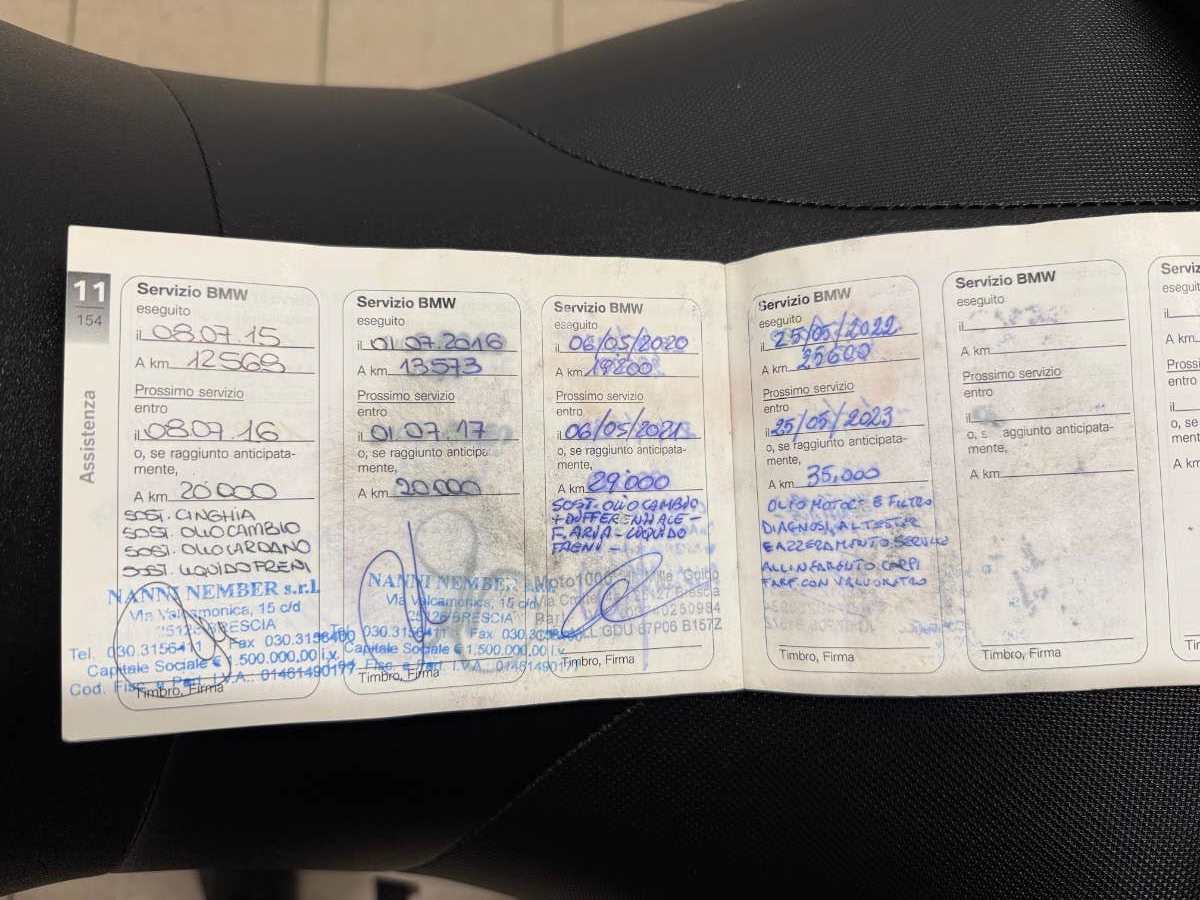 11
154
Assistenza
Servizio BMW
eseguito
il 08.07.15
A km 12569
Prossimo servizio
entro
il 08.07.16
o, se raggiunto anticipata-
mente,
A km 20'000
SOST. CINGHIA
SOST. OLIO CAMBIO
SOST. OLIO CARDANO
SOST. LIQUIDO FRENI
NANNI NEMBER s.r.l.
Via Valcamonica, 15 c/d
25125 BRESCIA
Tel. 030.3156411 Fax 030.3156400
Capitale Sociale € 1.500.000,00 i.v.
Cod. Fisc. e Part. I.V.A.: 01461490177
Timbro, Firma
Servizio BMW
eseguito
il 01.07.2016
A km 13573
Prossimo servizio
entro
il 01.07.17
o, se raggiunto anticipata-
mente,
A km 20000
NANNI NEMBER
Via Valcamonica, 15 c/d
25125 BRESCIA
Tel. 030.3156411 Fax
Capitale Sociale € 1.500.000,00 i.v.
Fisc. e Part. I.V.A.: 01461490177
Timbro, Firma
Servizio BMW
eseguito
il 06/05/2020
A km 19200
Prossimo servizio
entro
il 06/05/2021
o, se raggiunto anticipata-
mente,
A km 29'000
SOST. OLIO CAMBIO
+ DIFFERENZIALE -
F. ARIA - LIQUIDO
FRENI -
Brescia
GDU 67P06 B157Z
Timbro, Firma
Servizio BMW
eseguito
il 25/05/2022
A km 25600
Prossimo servizio
entro
il 25/05/2023
o, se raggiunto anticipata-
mente,
A km 35,000
OLIO MOTORE E FILTRO
DIAGNOSI AL TESTER
E AZZERAMENTO SERVICE
ALLINEAMENTO CORPI
FARF. CON VACUOMETRO
Timbro, Firma
Servizio BMW
eseguito
il
A km
Prossimo servizio
entro
il
o, se raggiunto anticipata-
mente,
A km
Timbro, Firma